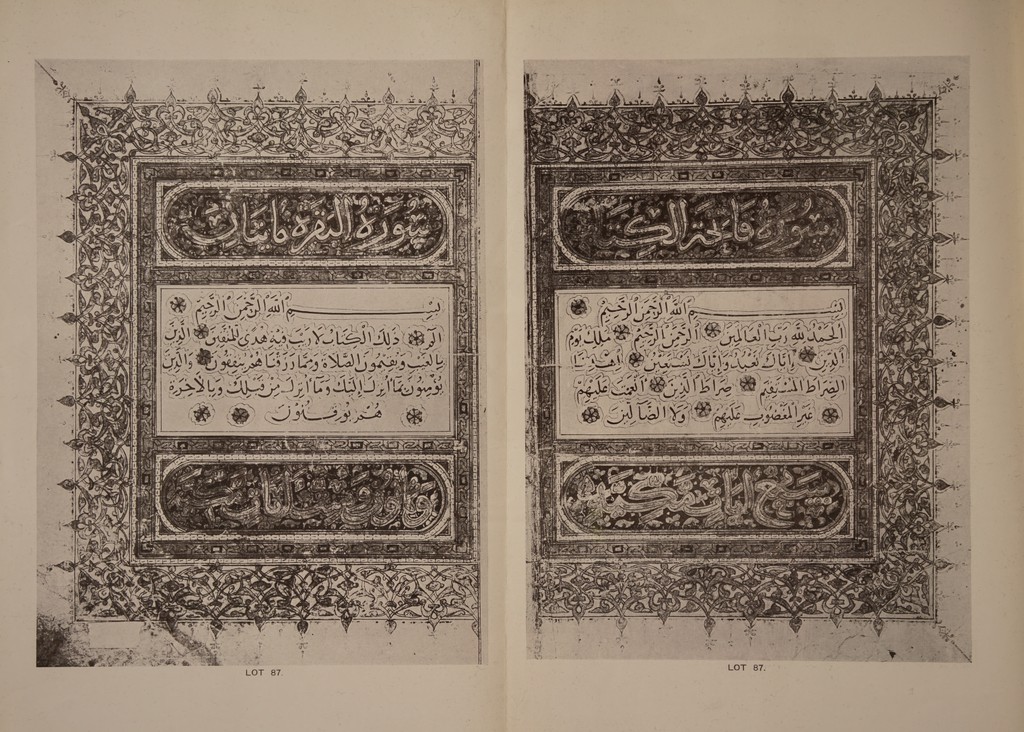 سورة فاتحة الكتاب
بسم الله الرحمن الرحيم
الحمد لله رب العالمين الرحمن الرحيم ملك يوم
الدين اياك نعبد واياك نستعين اهدنا
الصراط المستقيم صراط الذين انعمت عليهم
غير المغضوب عليهم ولا الضالين
سبع ايات مكية
LOT 87.
سورة البقرة مائتان
بسم الله الرحمن الرحيم
الم ذلك الكتاب لا ريب فيه هدى للمتقين الذين
بالغيب ويقيمون الصلاة ومما رزقناهم ينفقون والذين
يومنون بما انزل اليك وما انزل من قبلك وبالاخرة
هم يوقنون
LOT 87.